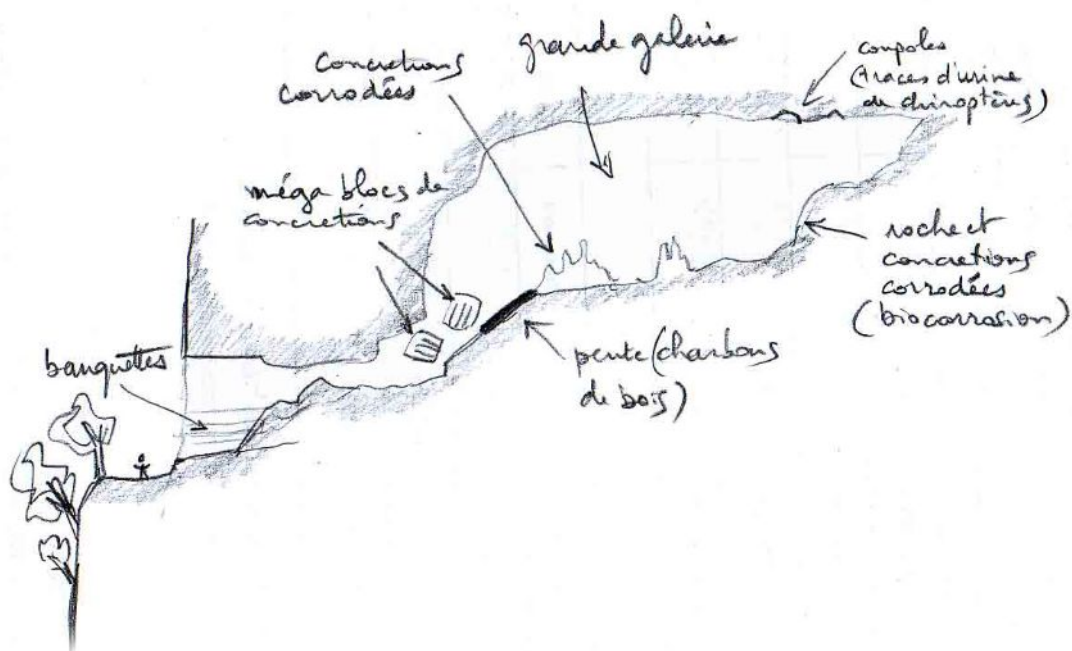 grande galerie
concretions
corrodées
coupoles
(traces d'urine
de chiroptères)
méga blocs de
concretions
roche et
concretions
corrodées
(biocorrosion)
banquettes
pente (charbons
de bois)